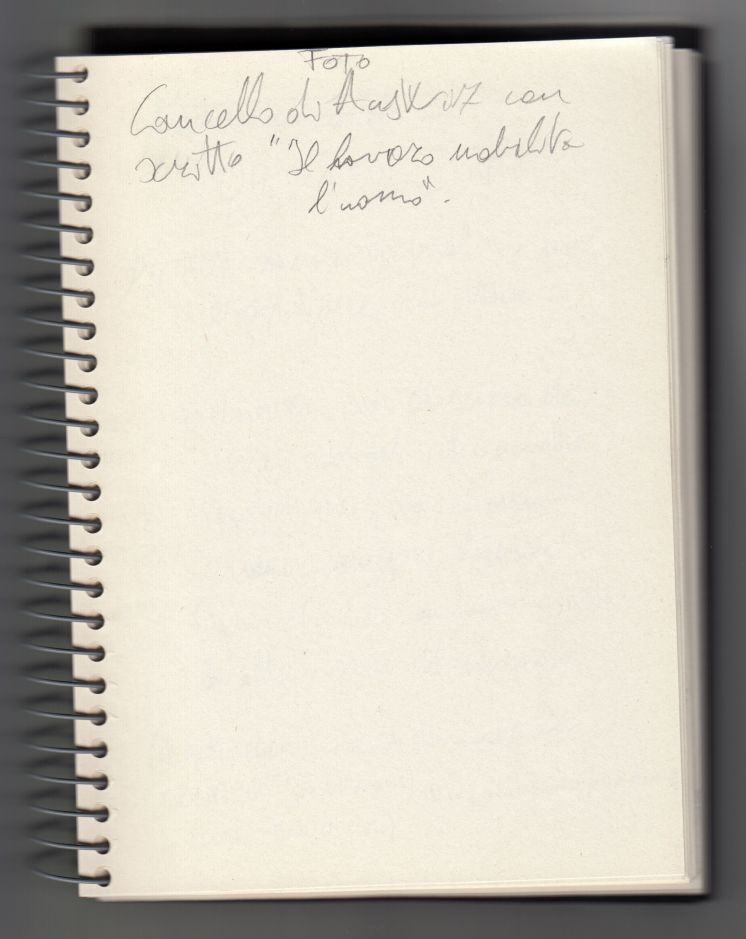 Foto
Cancello di Auskviz con
scritto "Il lavoro nobilita
l'uomo".